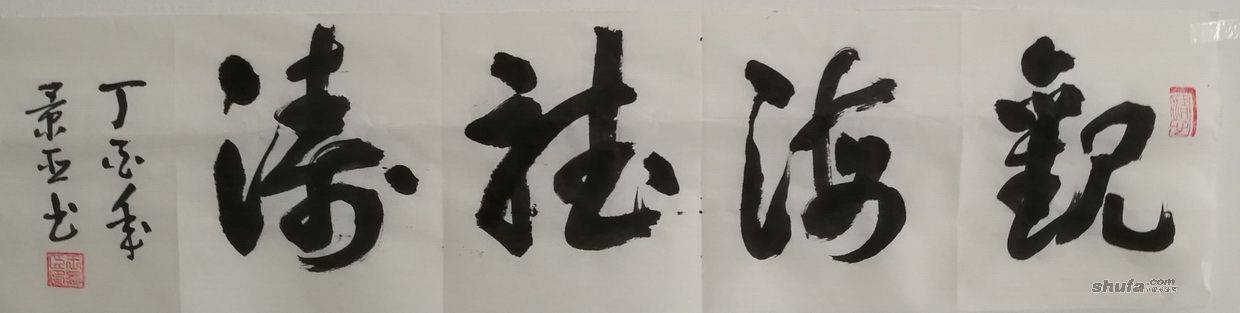 觀海聽濤
丁酉年
景亚书
shufa.com